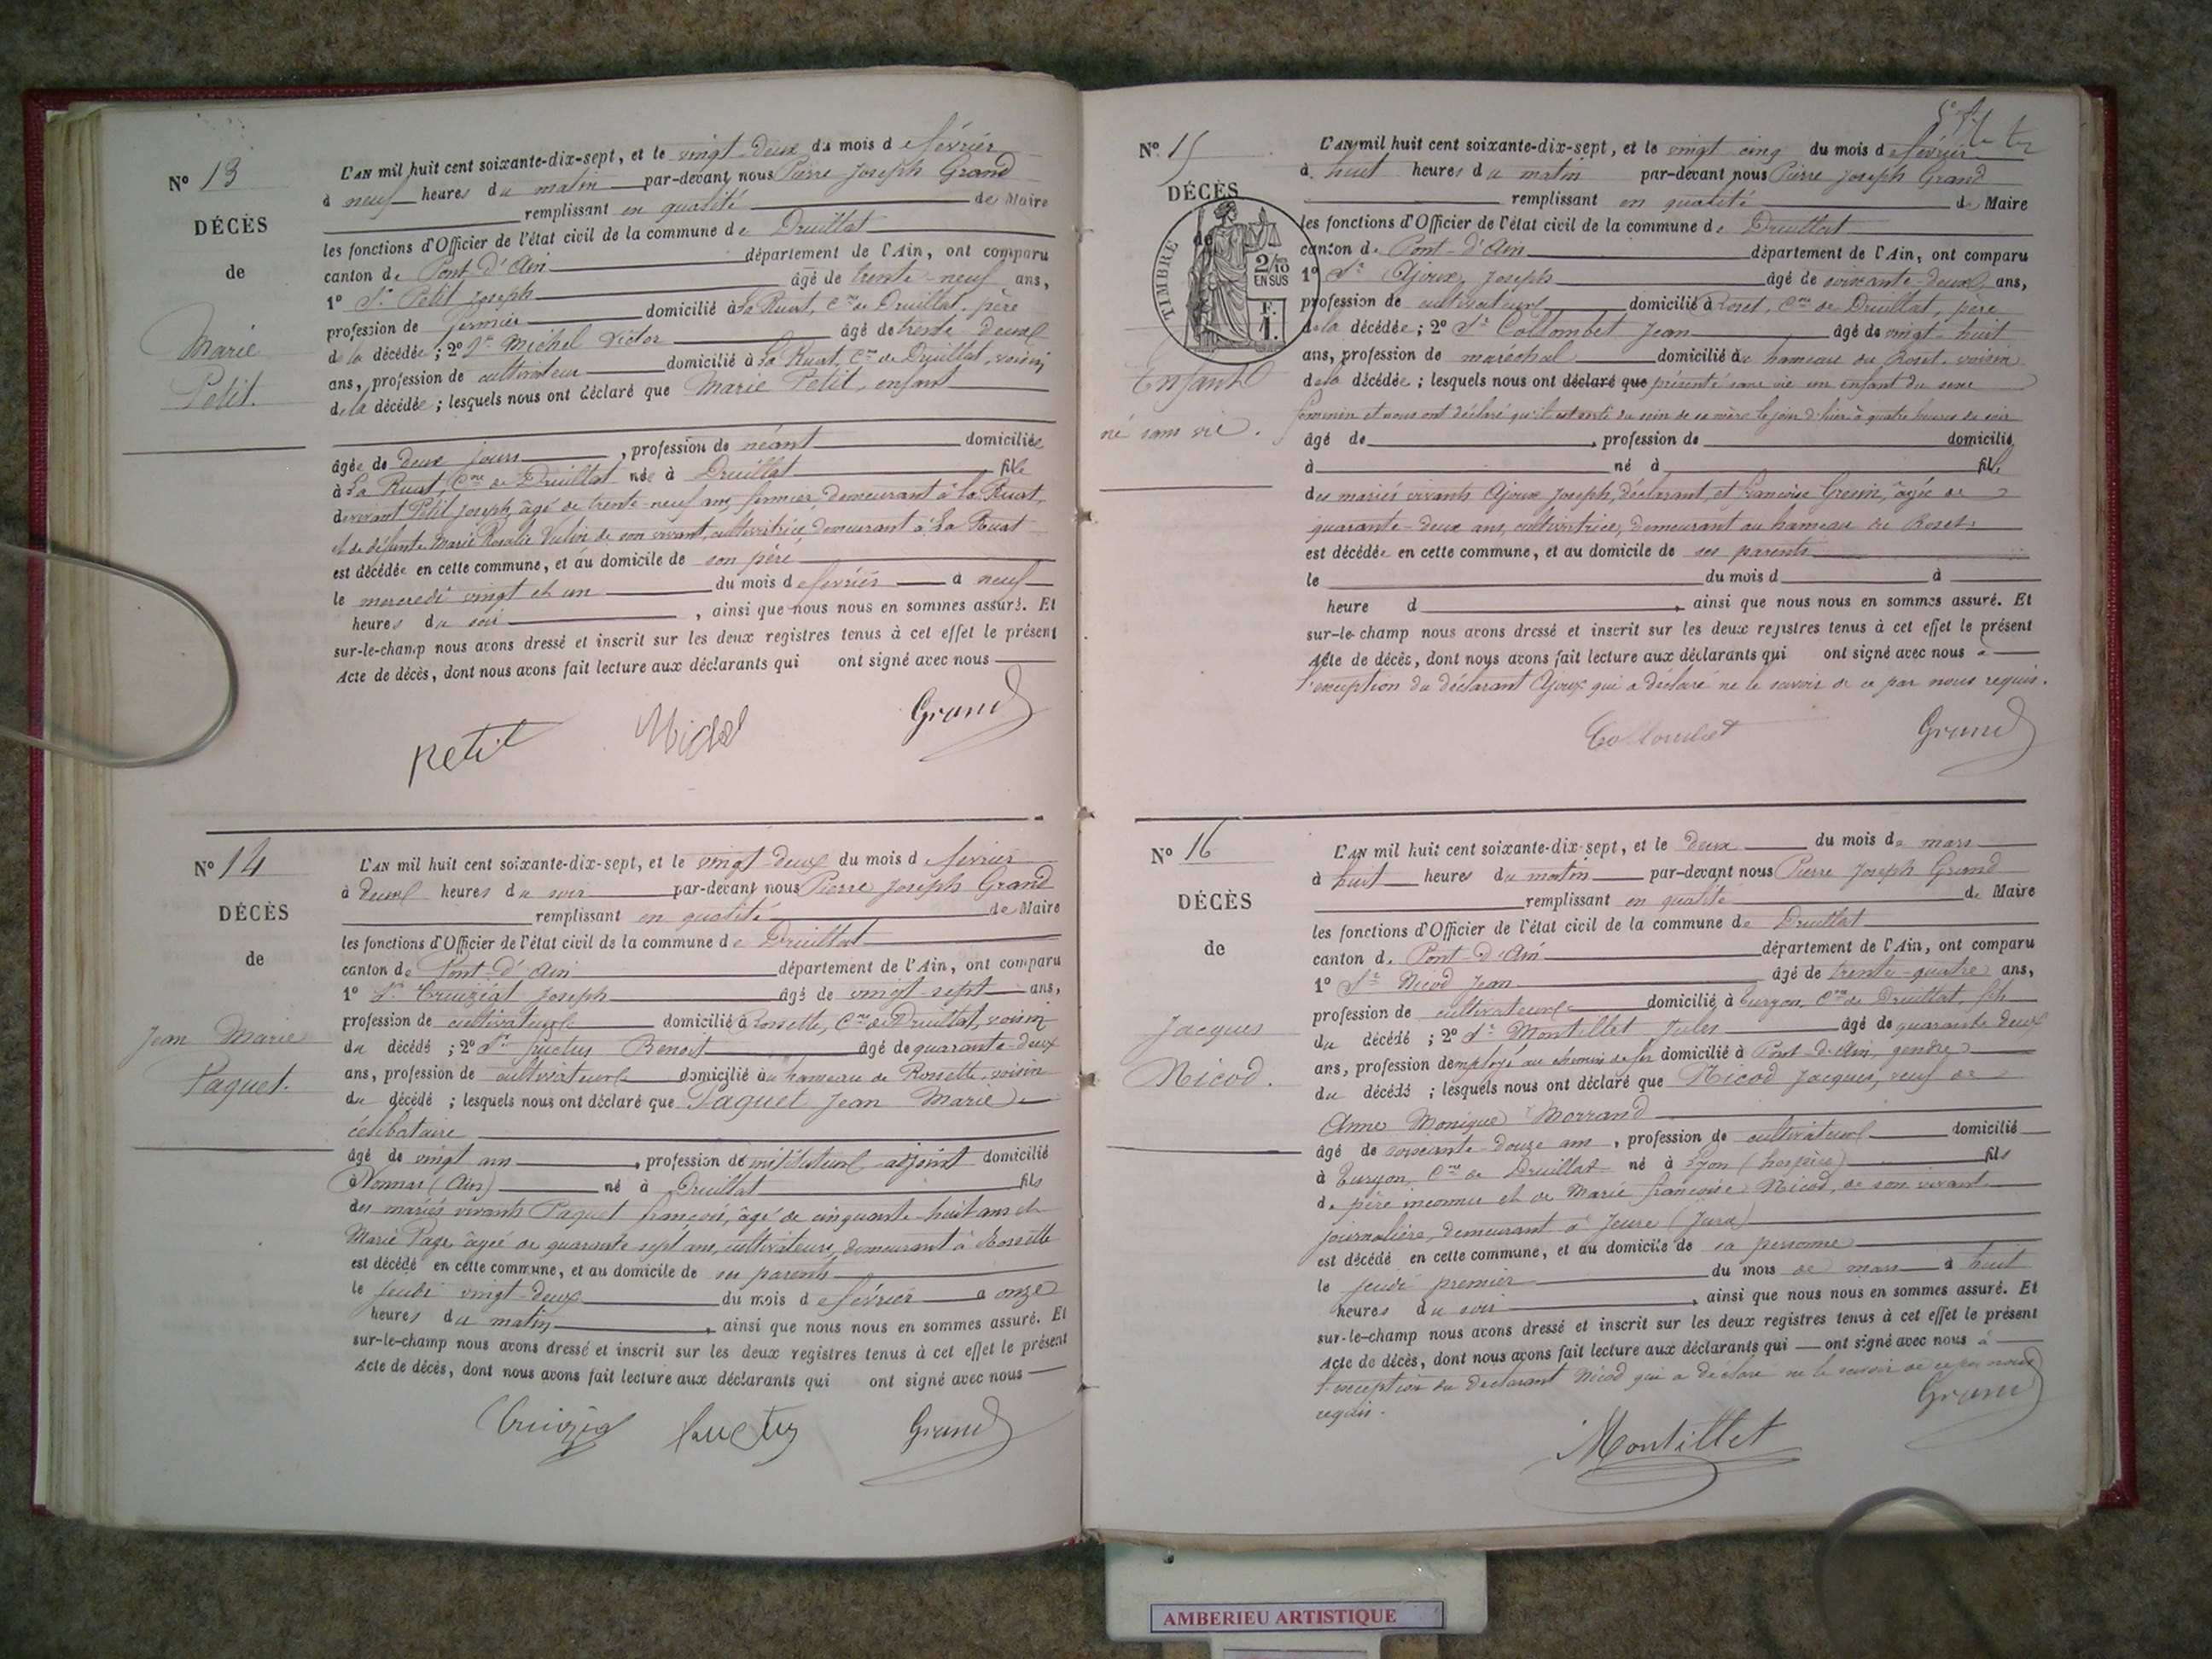 N° 13
DÉCÈS
de
Marie
Petit.
L'AN mil huit cent soixante-dix-sept, et le vingt-deux du mois de février
à neuf heures du matin par-devant nous Pierre Joseph Grand
remplissant en qualité de Maire
les fonctions d'Officier de l'état civil de la commune de Druillat
canton de Pont-d'Ain département de l'Ain, ont comparu
1° Sr Petit Joseph âgé de trente-neuf ans,
profession de fermier domicilié à La Ruat, Cne de Druillat, père
de la décédée ; 2° Sr Michel Victor âgé de trente deux
ans, profession de cultivateur domicilié à La Ruat, Cne de Druillat, voisin
de la décédée ; lesquels nous ont déclaré que Marie Petit, enfant
âgée de deux jours, profession de néant domiciliée
à La Ruat, Cne de Druillat née à Druillat fille
de vivant Petit Joseph, âgé de trente-neuf ans, fermier, demeurant à la Ruat,
et de défunte Marie Rosalie de son vivant, cultivatrice, demeurant à La Ruat
est décédée en cette commune, et au domicile de son père
le mercredi vingt et un du mois de février à neuf
heures du soir, ainsi que nous nous en sommes assuré. Et
sur-le-champ nous avons dressé et inscrit sur les deux registres tenus à cet effet le présent
Acte de décès, dont nous avons fait lecture aux déclarants qui ont signé avec nous
Petit Michel Grand
N° 14
DÉCÈS
de
Jean Marie
Paquet.
L'AN mil huit cent soixante-dix-sept, et le vingt-deux du mois de février
à deux heures du soir par-devant nous Pierre Joseph Grand
remplissant en qualité de Maire
les fonctions d'Officier de l'état civil de la commune de Druillat
canton de Pont-d'Ain département de l'Ain, ont comparu
1° Sr Cruiziat Joseph âgé de vingt-sept ans,
profession de cultivateur domicilié à Rossette, Cne de Druillat, voisin
du décédé ; 2° Sr Fuctus Benoit âgé de quarante-deux
ans, profession de cultivateur domicilié au hameau de Rossette, voisin
du décédé ; lesquels nous ont déclaré que Paquet Jean Marie
célibataire
âgé de vingt ans, profession de instituteur adjoint domicilié
à (Ain) né à Druillat fils
des mariés vivants Paquet François, âgé de cinquante-huit ans et
Marie Page, âgée de quarante sept ans, cultivateurs, demeurant à Rossette
est décédé en cette commune, et au domicile de ses parents
le jeudi vingt-deux du mois de février à onze
heures du matin, ainsi que nous nous en sommes assuré. Et
sur-le-champ nous avons dressé et inscrit sur les deux registres tenus à cet effet le présent
Acte de décès, dont nous avons fait lecture aux déclarants qui ont signé avec nous
Cruiziat Fuctus Grand
N° 15
DÉCÈS
de
TIMBRE
2/10
EN SUS
F.
1.
Enfant
né sans vie.
L'AN mil huit cent soixante-dix-sept, et le vingt cinq du mois de février
à huit heures du matin par-devant nous Pierre Joseph Grand
remplissant en qualité de Maire
les fonctions d'Officier de l'état civil de la commune de Druillat
canton de Pont-d'Ain département de l'Ain, ont comparu
1° Sr Ajoux Joseph âgé de soixante-deux ans,
profession de cultivateur domicilié à Roset, Cne de Druillat, père
de la décédée ; 2° Sr Collombet Jean âgé de vingt-huit
ans, profession de maréchal domicilié au hameau du Roset, voisin
de la décédée ; lesquels nous ont déclaré que présenté sans vie un enfant du sexe
féminin et nous ont déclaré qu'il est sorti du sein de sa mère le jour d'hier à quatre heures du soir
âgé de, profession de domicilié
à né à fils
des mariés vivants Ajoux Joseph, déclarant, et Françoise, âgée de
quarante-deux ans, cultivatrice, demeurant au hameau de Roset
est décédée en cette commune, et au domicile de ses parents
le du mois d à
heure d, ainsi que nous nous en sommes assuré. Et
sur-le-champ nous avons dressé et inscrit sur les deux registres tenus à cet effet le présent
Acte de décès, dont nous avons fait lecture aux déclarants qui ont signé avec nous à
l'exception du déclarant Ajoux qui a déclaré ne le savoir de ce par nous requis.
Collombet Grand
N° 16
DÉCÈS
de
Jacques
Nicod.
L'AN mil huit cent soixante-dix-sept, et le deux du mois de mars
à huit heures du matin par-devant nous Pierre Joseph Grand
remplissant en qualité de Maire
les fonctions d'Officier de l'état civil de la commune de Druillat
canton de Pont-d'Ain département de l'Ain, ont comparu
1° Sr Nicod Jean âgé de trente-quatre ans,
profession de cultivateur domicilié à Turgon, Cne de Druillat, fils
du décédé ; 2° Sr Montillet Jules âgé de quarante deux
ans, profession d'employé au chemin de fer domicilié à Pont-d'Ain, gendre
du décédé ; lesquels nous ont déclaré que Nicod Jacques, veuf de
Anne Monique Morrand
âgé de soixante-douze ans, profession de cultivateur domicilié
à Turgon, Cne de Druillat né à Lyon (hospice) fils
de père inconnu et de Marie Françoise Nicod, de son vivant
journalière, demeurant à Jeure (Jura)
est décédé en cette commune, et au domicile de sa personne
le jeudi premier du mois de mars à huit
heures du soir, ainsi que nous nous en sommes assuré. Et
sur-le-champ nous avons dressé et inscrit sur les deux registres tenus à cet effet le présent
Acte de décès, dont nous avons fait lecture aux déclarants qui ont signé avec nous à
l'exception du déclarant Nicod qui a déclaré ne le savoir de ce par nous
requis.
Montillet Grand
AMBERIEU ARTISTIQUE